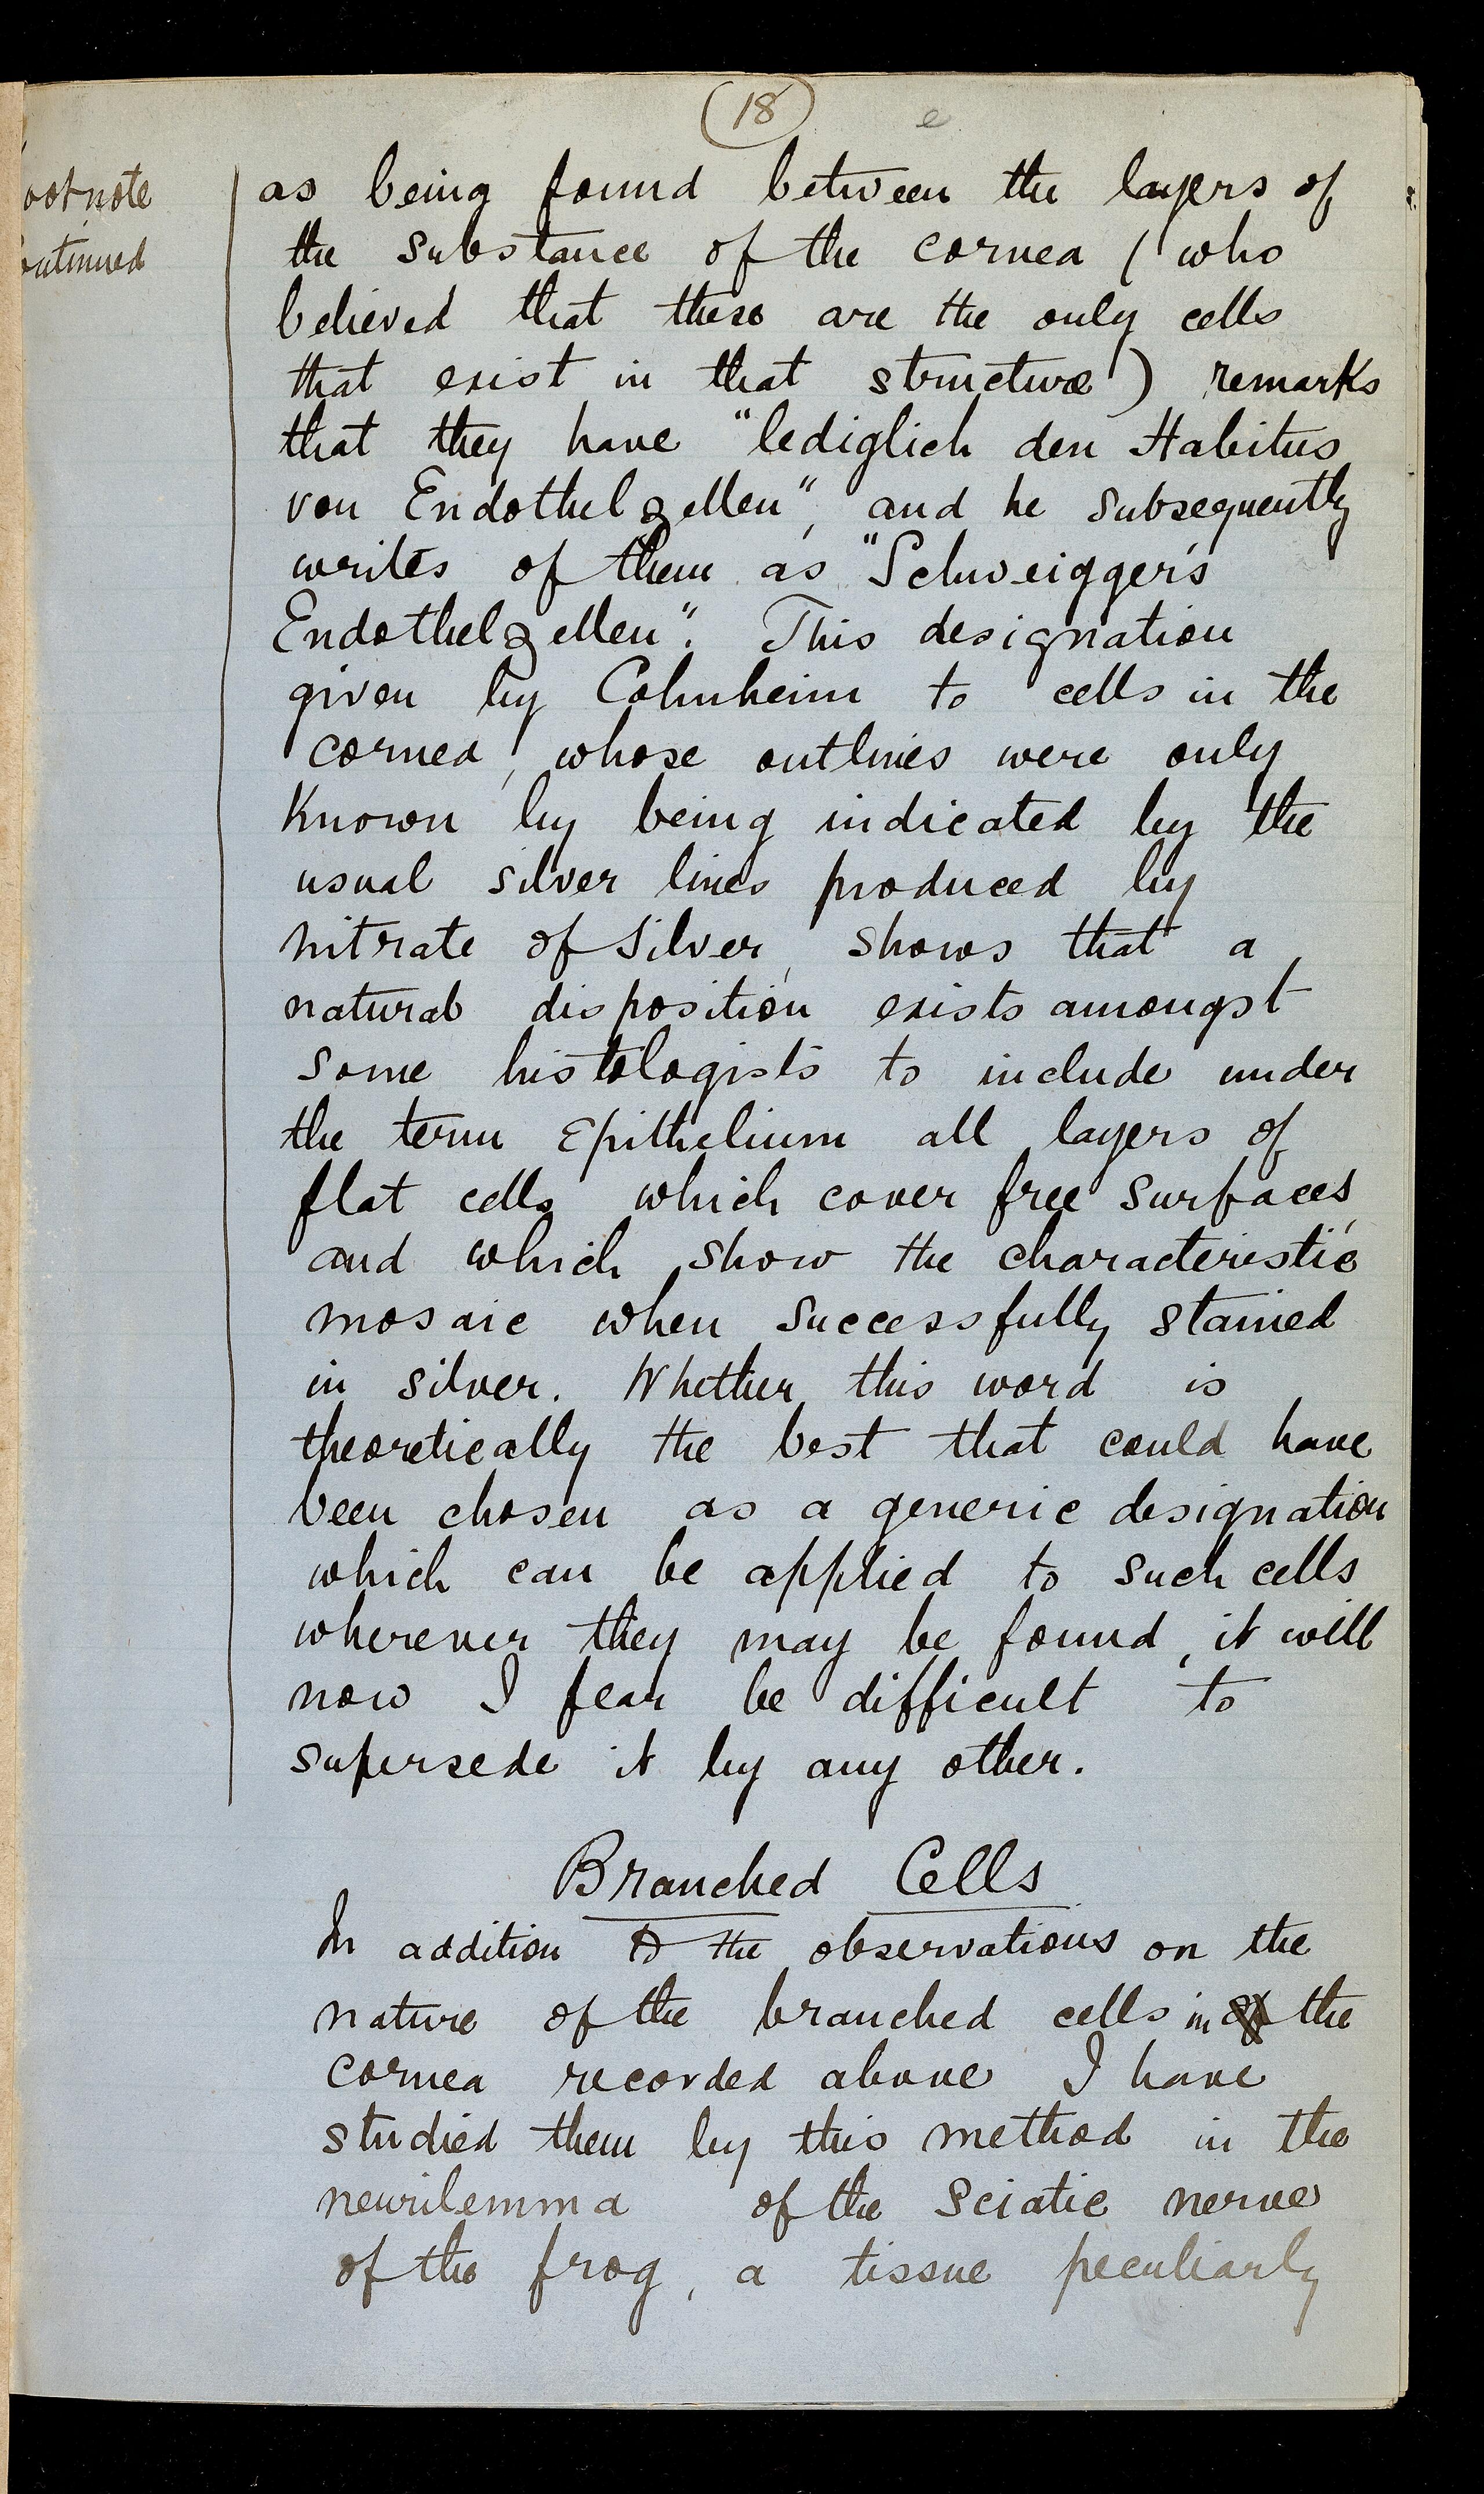 (18)
e
ootnote
ontinued
as being found between the layers of
the substance of the cornea (who
believed that these are the only cells
that exist in that structure) remarks
that they have "lediglich den Habitus
von Endothelzellen", and he subsequently
writes of them as "Schweigger's
Endothelzellen". This designation
given by Cohnheim to cells in the
cornea, whose outlines were only
known by being indicated by the
usual silver lines produced by
nitrate of silver, shows that a
natural disposition exists amongst
some histologists to include under
the term Epithelium all layers of
flat cells which cover free surfaces,
and which show the characteristic
mosaic when successfully stained
in silver. Whether this word is
theoretically the best that could have
been chosen as a generic designation
which can be applied to such cells
wherever they may be found, it will
now I fear be difficult to
supersede it by any other.
Branched Cells
In addition to the observations on the
nature of the branched cells in the
cornea recorded above I have
studied them by this method in the
neurilemma of the Sciatic nerve
of the frog, a tissue peculiarly